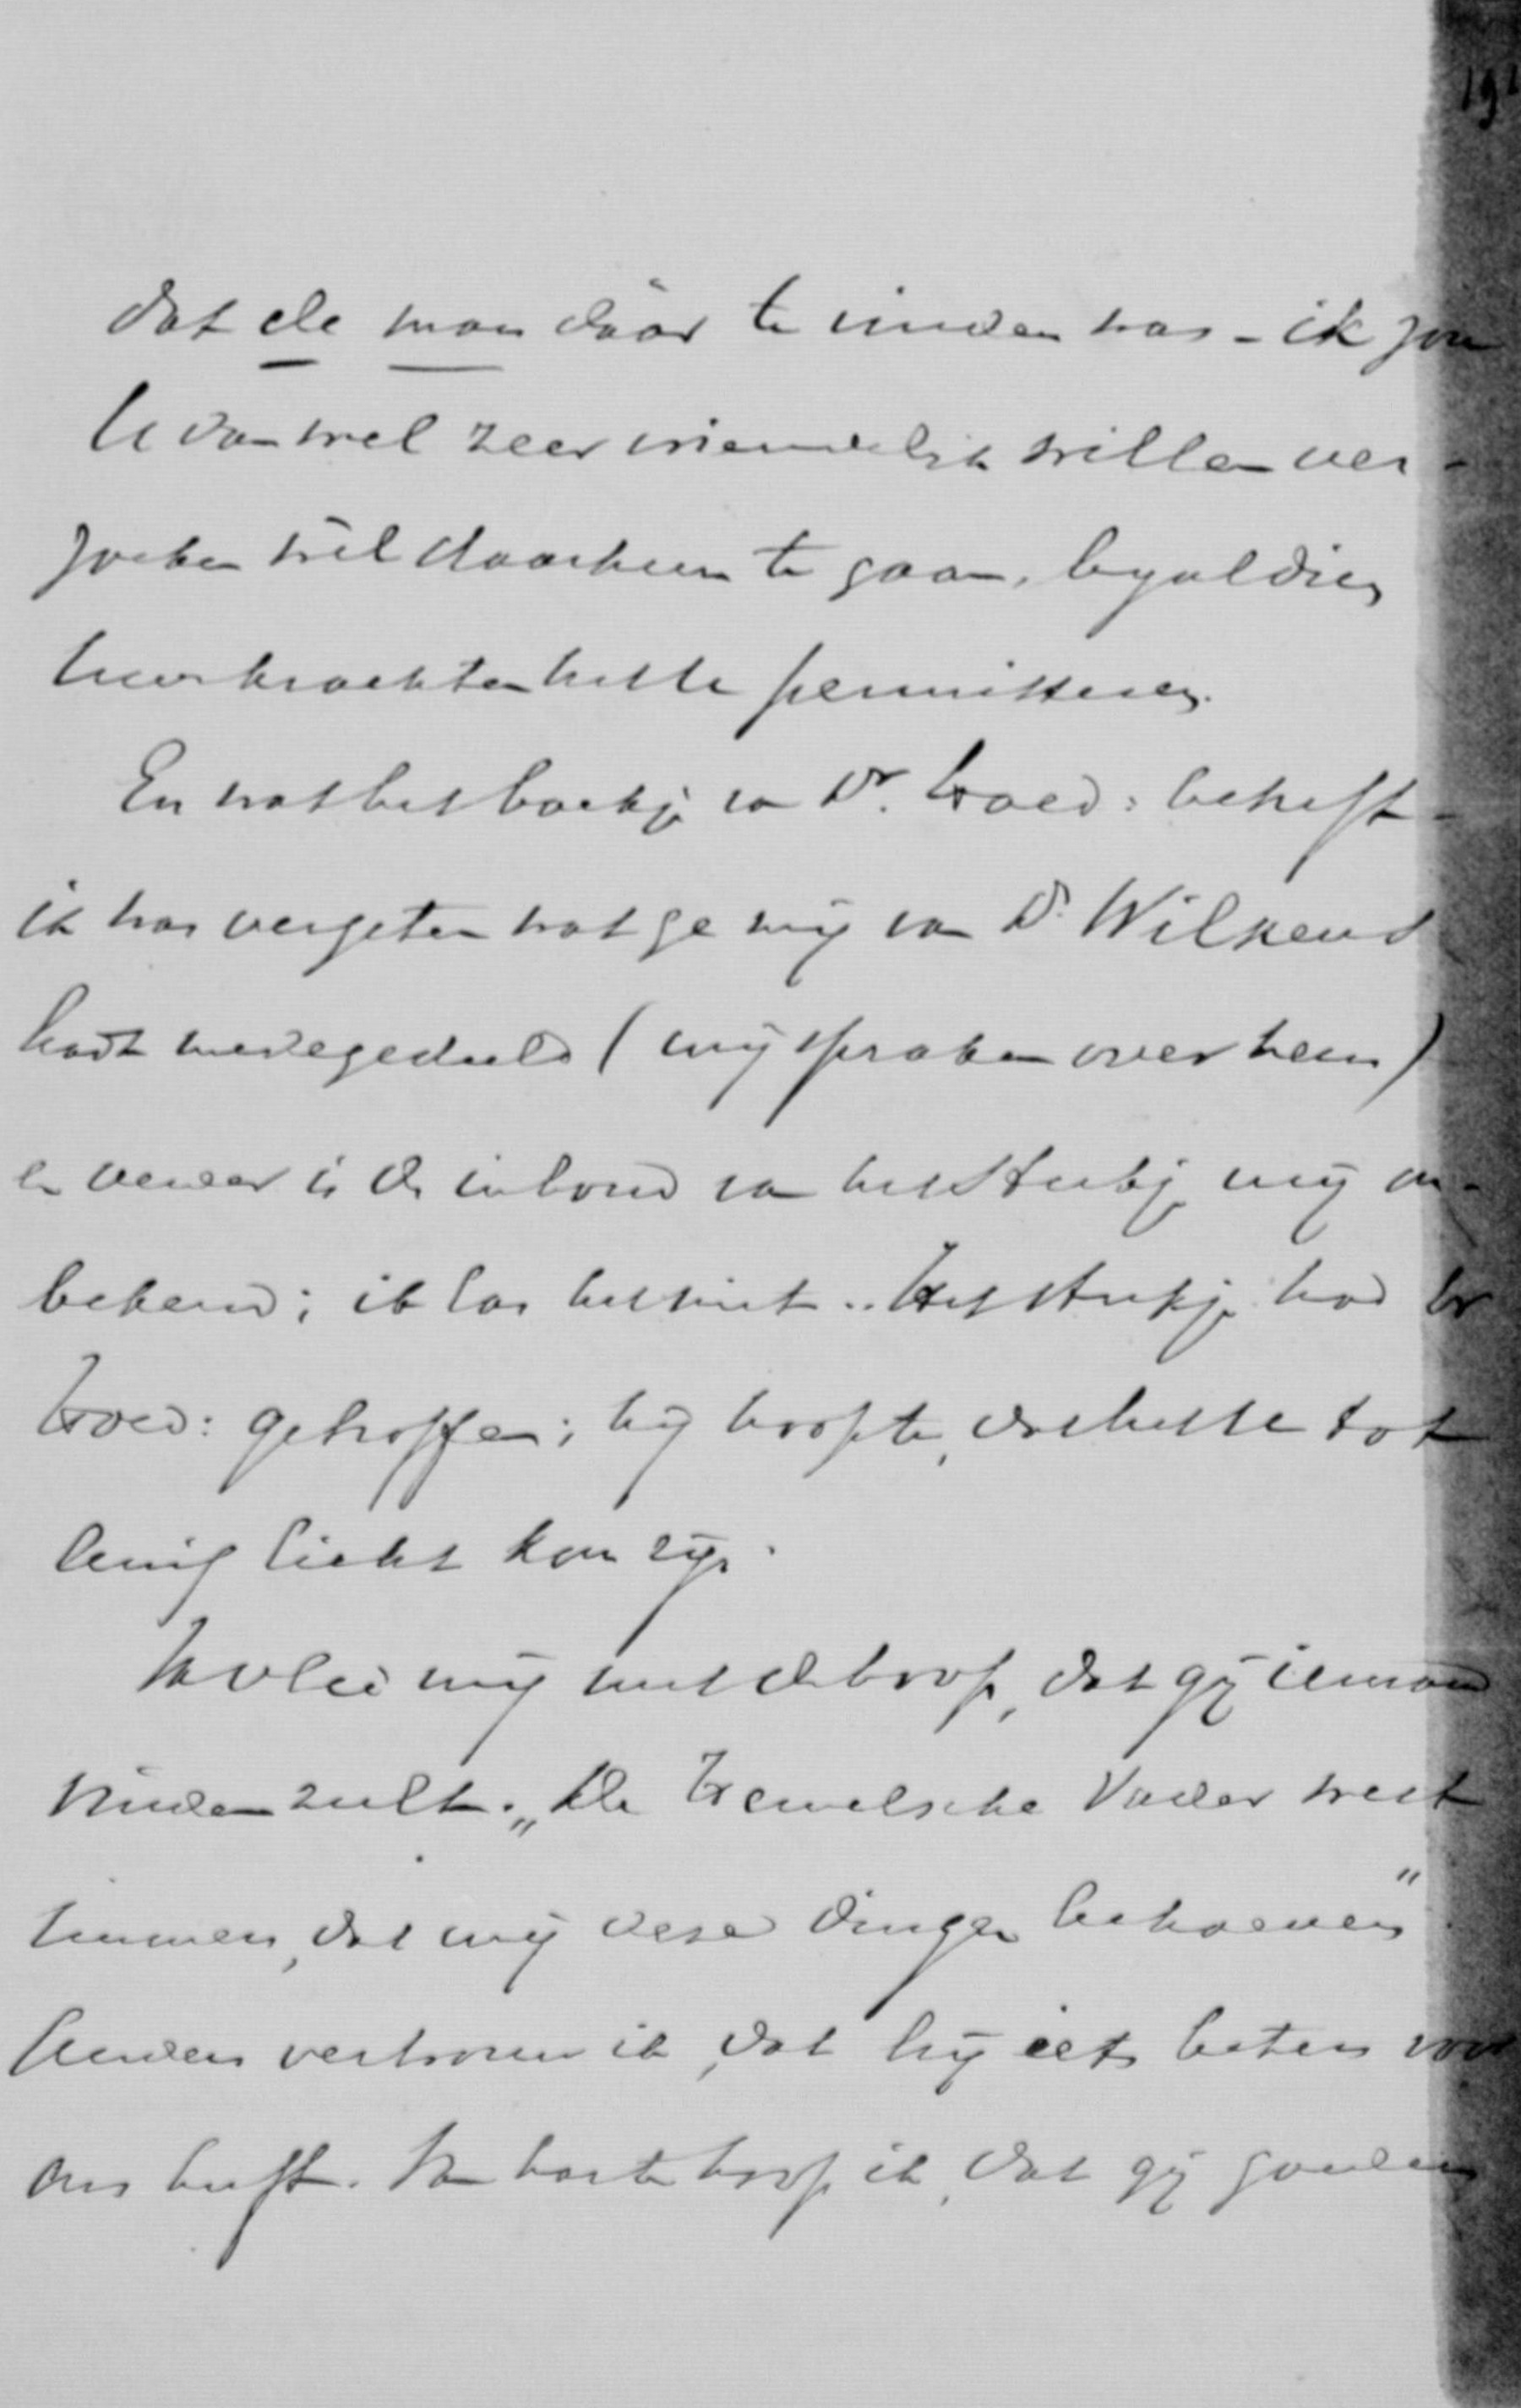 dat de man dáár te vinden was - ik zou
U dan wel zeer vriendelijk willen ver-
zoeken wèl daarheen te gaan, byaldien
Uwe krachten het U permitteeren.
En wat het boekje van Dr. Hoed: betreft -
ik was vergeten wat ge mij van Dr. Wilkens
hadt medegedeeld (wij spraken over hem)
en verder is de inhoud van het stukje mij on-
bekend; ik las het niet. Het stukje had Br
Hoed: getroffen; hij hoopte, dat het U tot
eenig licht kon zijn.
Ik vlei mij met de hoop, dat gij iemand
vinden zult. „De Hemelsche Vader weet
immers, dat wij deze dingen behoeven".
Anders vertrouw ik, dat hij iets beters voor
ons heeft. Van harte hoop ik, dat gij zoudt